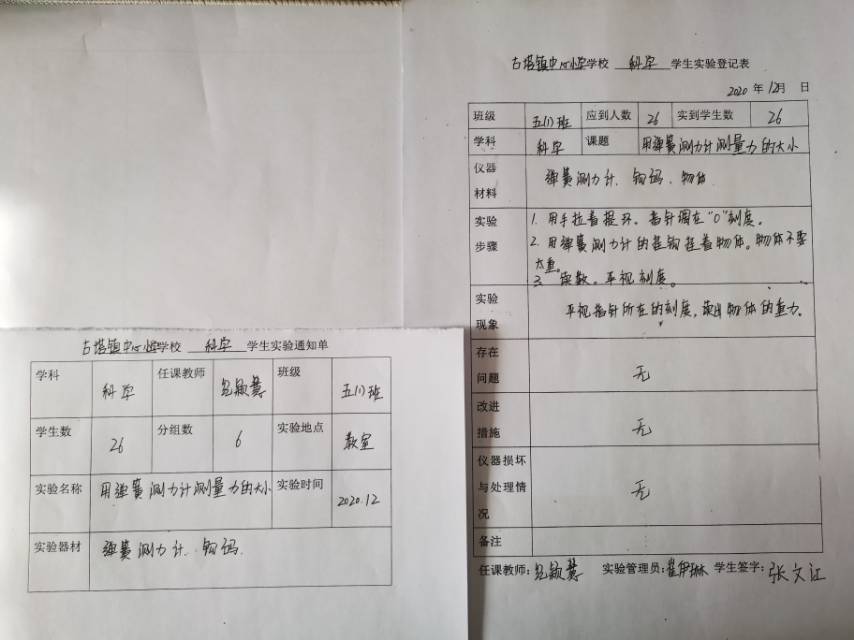 古塔镇中心小学学校 科学 学生实验登记表
2020 年 12月 日
班级 五(1)班 应到人数 26 实到学生数 26
学科 科学 课题 用弹簧测力计测量力的大小
仪器材料 弹簧测力计、钩码、物体
实验步骤 1. 用手拉着提环、指针调在“0”刻度。
2. 用弹簧测力计的挂钩挂着物体。物体不要
太重。
3. 读数。平视刻度。
实验现象 平视指针所在的刻度,读出物体的重力。
存在问题 无
改进措施 无
仪器损坏与处理情况 无
备注
任课教师: 颖慧 实验管理员: 伊琳 学生签字: 张文江
古塔镇中心小学学校 科学 学生实验通知单
学科 科学 任课教师 颖慧 班级 五(1)班
学生数 26 分组数 6 实验地点 教室
实验名称 用弹簧测力计测量力的大小 实验时间 2020.12
实验器材 弹簧测力计、钩码.